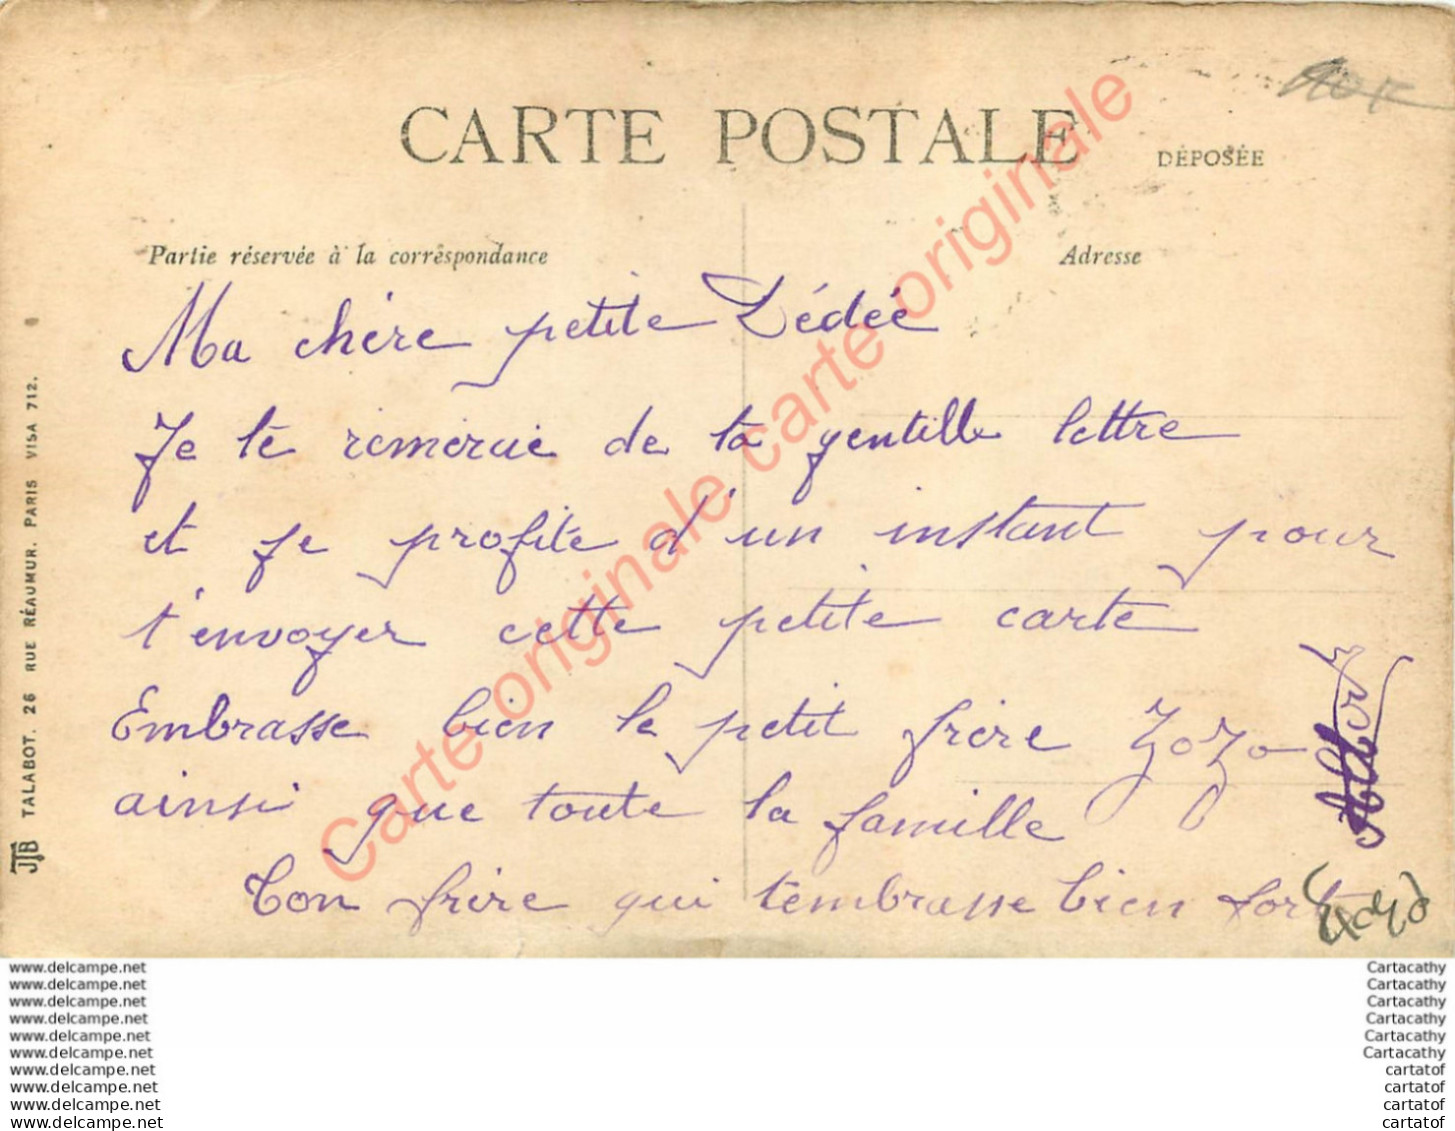 CARTE POSTALE
DÉPOSÉE
Partie réservée à la correspondance
Adresse
Ma chère petite Dédée
Je te remercie de ta gentille lettre
et je profite d'un instant pour
t'envoyer cette petite carte
Embrasse bien le petit frère Zozo
ainsi que toute la famille
Ton frère qui t'embrasse bien fort
Albert
TALABOT. 26 RUE RÉAUMUR. PARIS VISA 712.
JTB
Carte originale carte originale
www.delcampe.net
www.delcampe.net
www.delcampe.net
www.delcampe.net
www.delcampe.net
www.delcampe.net
www.delcampe.net
www.delcampe.net
www.delcampe.net
www.delcampe.net
Cartacathy
Cartacathy
Cartacathy
Cartacathy
Cartacathy
Cartacathy
cartatof
cartatof
cartatof
cartatof